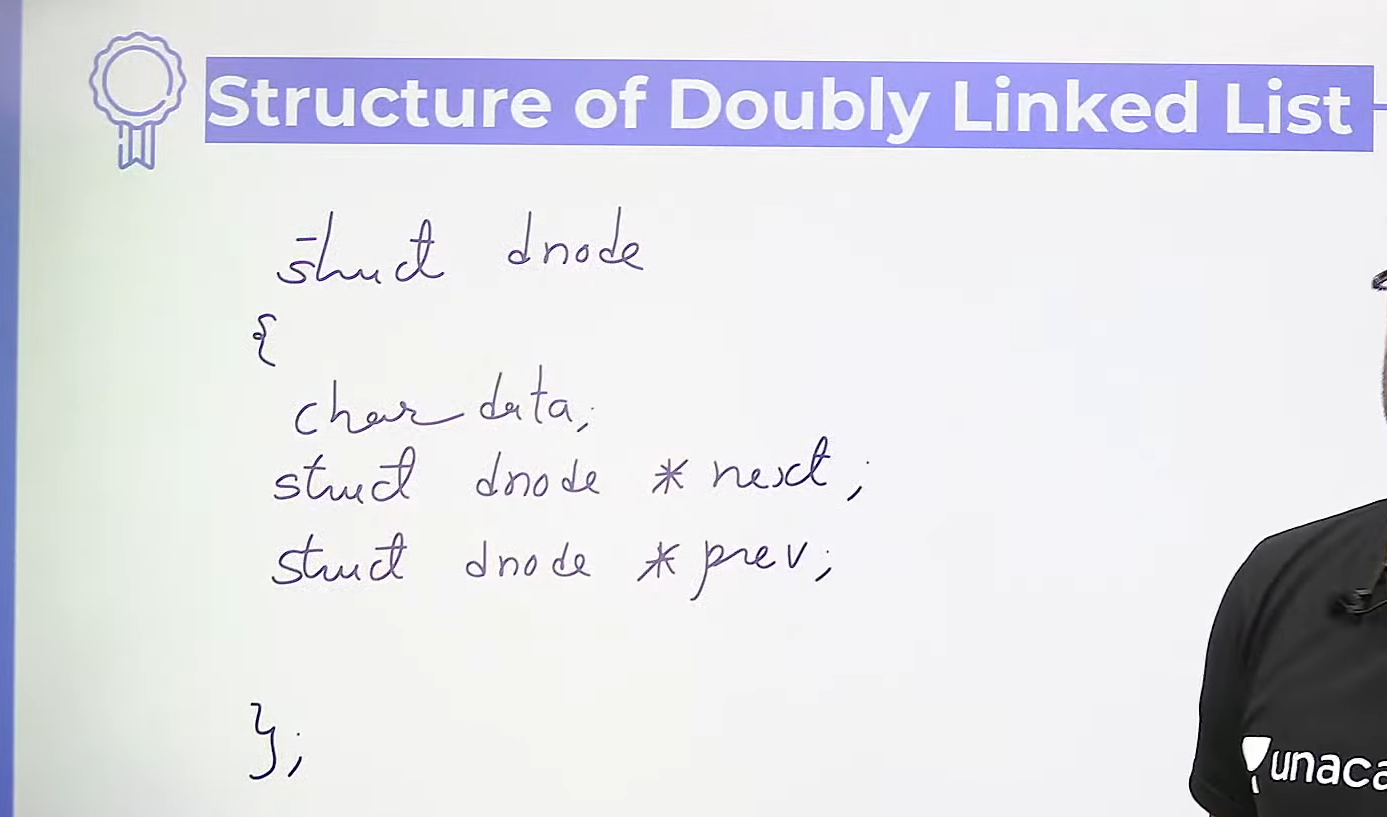 Structure of Doubly Linked List
struct dnode
{
char data;
struct dnode * next;
struct dnode * prev;
};
unaca